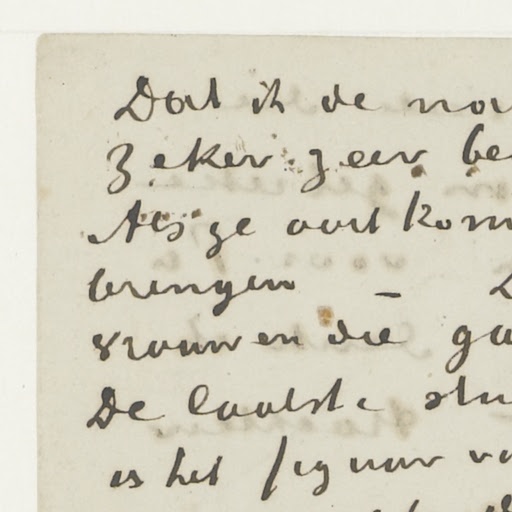 Dat ik de na
Zeker zeer be
Als ge ooit kom
brengen –
vrouwen die ga
De laatste stu
is het figuur va